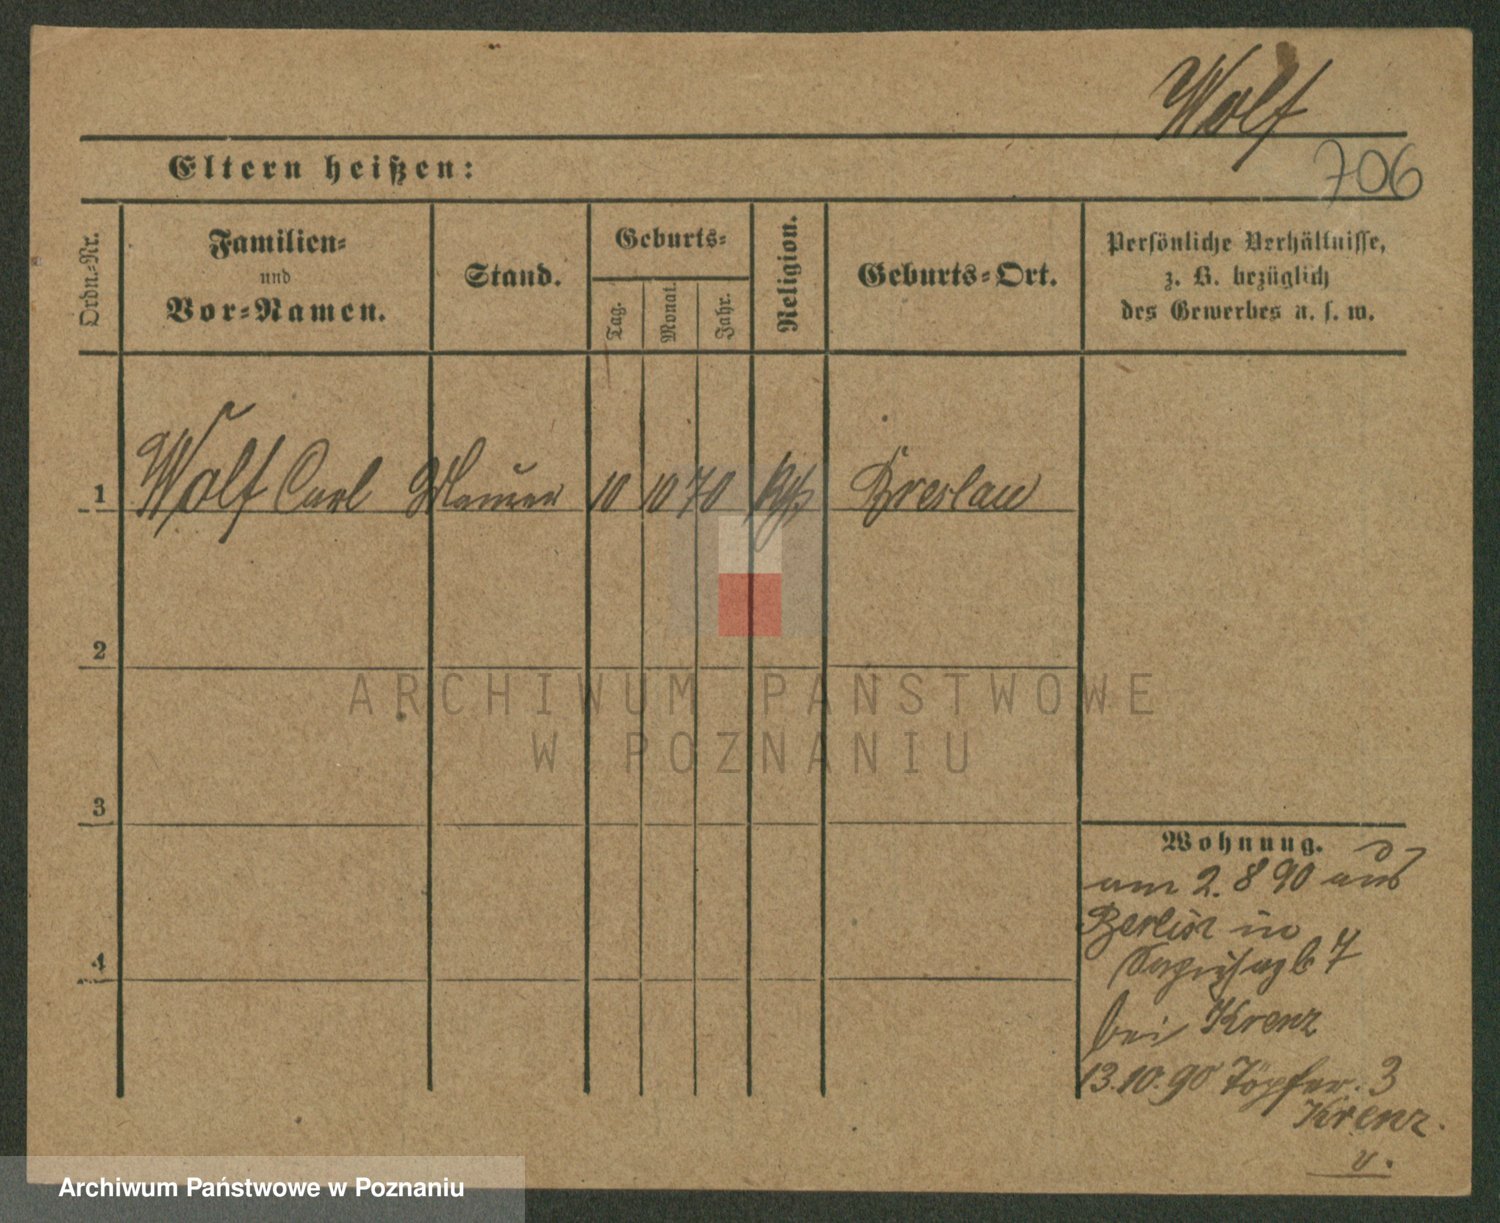 Wolf
706
Eltern heißen:
Ordn.-Nr.
Familien-
und
Vor-Namen.
Stand.
Geburts-
Tag.
Monat.
Jahr.
Religion.
Geburts-Ort.
Persönliche Verhältnisse,
z. B. bezüglich
des Gewerbes u. s. w.
1 Wolf Carl Maurer 10 10 70 Breslau
2
3
4
Wohnung.
am 2. 8 90 aus
Berlin in
7
bei Krenz
13.10.90 Töpfer. 3
Krenz.
v.
ARCHIWUM PAŃSTWOWE
W POZNANIU
Archiwum Państwowe w Poznaniu